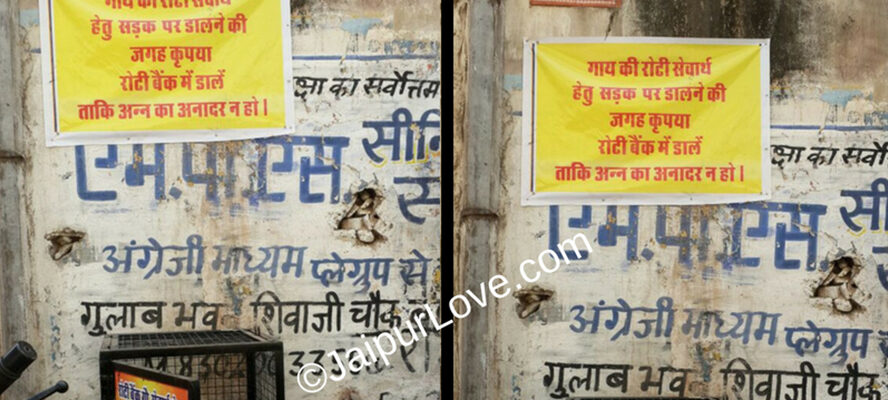 गाय की रोटी सेवार्थ
हेतु सड़क पर डालने की
जगह कृपया
रोटी बैंक में डालें
ताकि अन्न का अनादर न हो।
क्षा का सर्वोत्तम
एम.पी.एस. सीनि
अंग्रेजी माध्यम प्लेग्रुप से
गुलाब भव शिवाजी चौक
गाय की रोटी सेवार्थ
हेतु सड़क पर डालने की
जगह कृपया
रोटी बैंक में डालें
ताकि अन्न का अनादर न हो।
क्षा का सर्वो
एम.पी.एस. सी
अंग्रेजी माध्यम प्लेग्रुप
गुलाब भव शिवाजी चौक
©JaipurLove.com